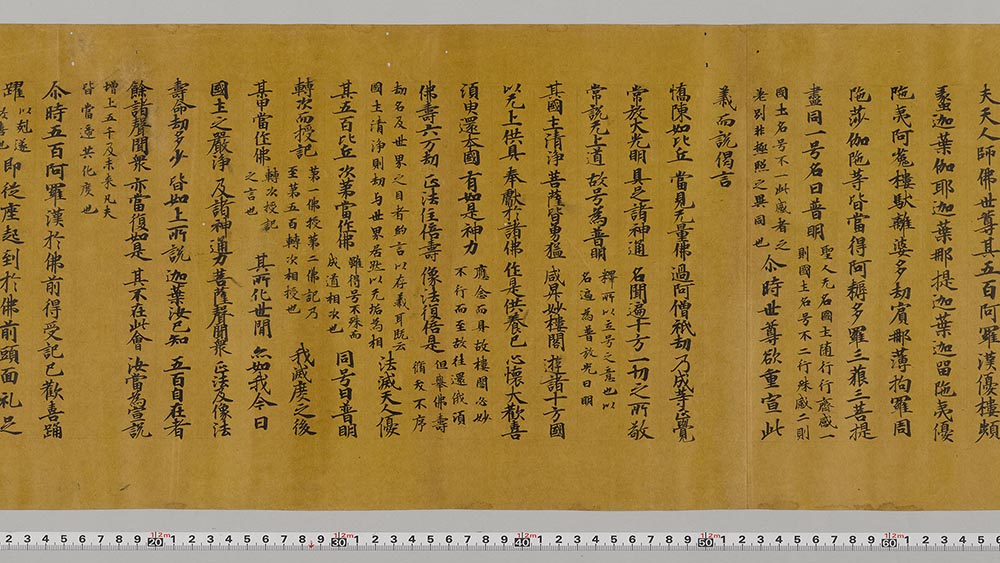 夫天人師佛世尊其五百阿羅漢優樓頻
螺迦葉伽耶迦葉那提迦葉迦留陁夷優
陁夷阿㝹樓馱離婆多劫賓那薄拘羅周
陁莎伽陁等皆當得阿耨多羅三藐三菩提
盡同一号名曰普明
聖人无名國土隨行行齊感一
則國土名号不二行殊感二則
國土名号不一此感者之
差別非極照之異同也
尒時世尊欲重宣此
義而說偈言
憍陳如比丘 當見无量佛 過阿僧祇劫 乃成等正覺
常放大光明 具足諸神通 名聞遍十方 一切之所敬
常說无上道 故号為普明
釋所以立号之意也以
名遍為普放光曰明
其國土清淨 菩薩皆勇猛 咸昇妙樓閣 遊諸十方國
以无上供具 奉獻於諸佛 作是供養已 心懷大歡喜
須臾還本國 有如是神力
應念而具故樓閣必妙
不行而至故往還俄頃
佛壽六万劫 正法住倍壽 像法復倍是
但舉佛壽
不序
劫名及世界之目者約言以存義耳既云
國土清淨則劫与世界居然以无垢為相
法滅天人優
其五百比丘 次第當作佛
雖得号不殊而
成道相次也
同号曰普明
轉次而授記
第一佛授第二佛記乃
至第五百轉次相授也
我滅度之後
某甲當作佛
轉次授記
之言也
其所化世間 亦如我今日
國土之嚴淨 及諸神通力 菩薩聲聞衆 正法及像法
壽命劫多少 皆如上所說 迦葉汝已知 五百自在者
餘諸聲聞衆 亦當復如是 其不在此會 汝當為宣說
增上五千及未來凡夫
皆當遠其化度也
尒時五百阿羅漢於佛前得受記已歡喜踊
躍
以剋遂
故喜也
即從座起到於佛前頭面礼足